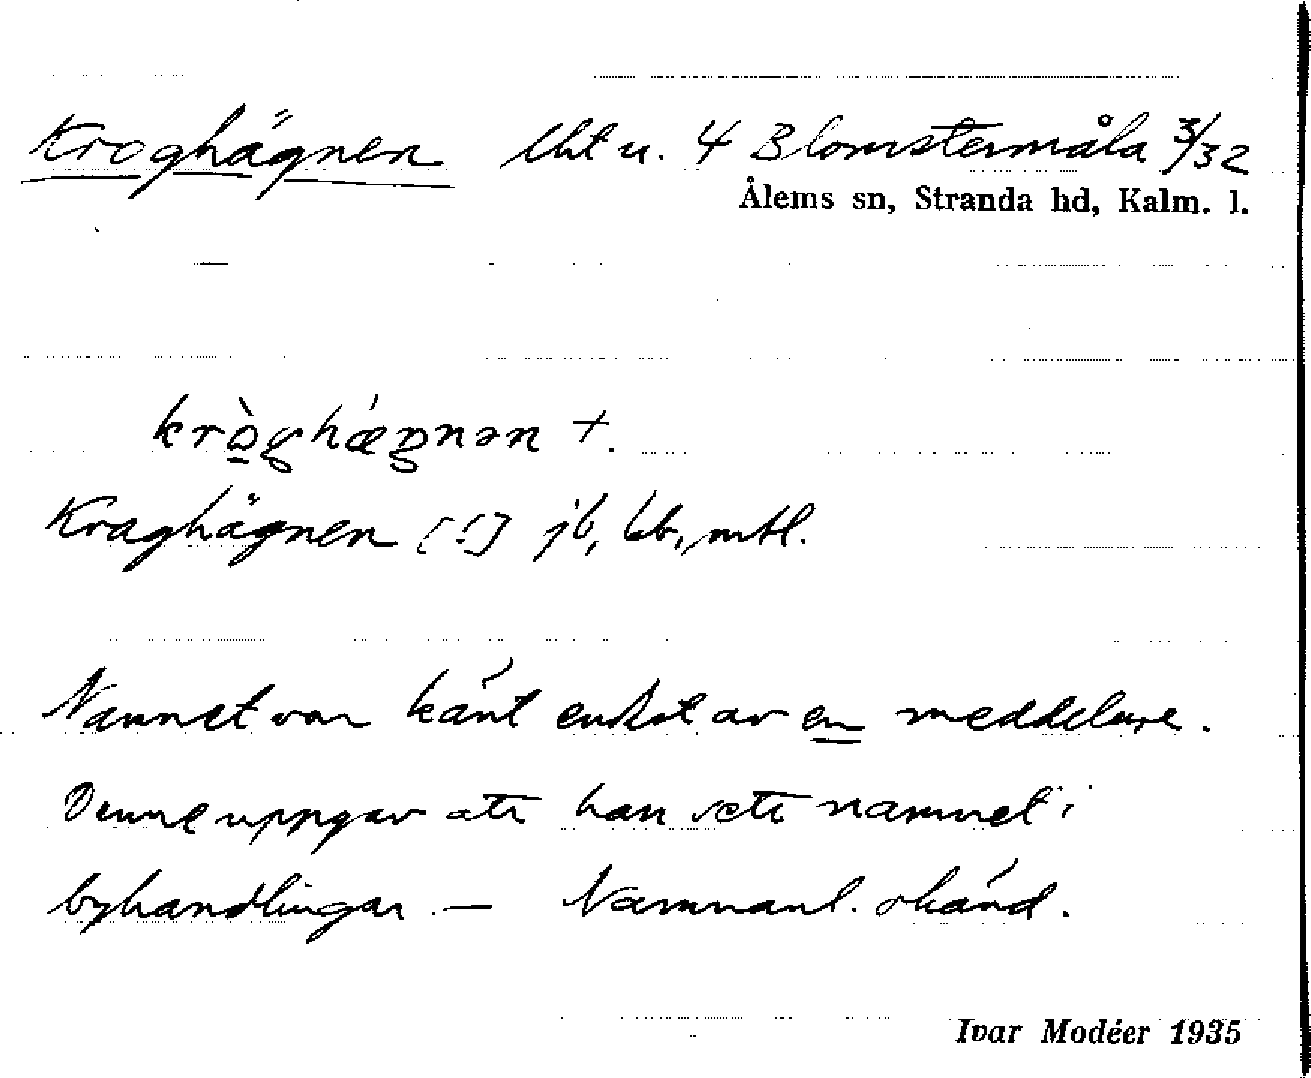 Kroghägnen lht u. 4 Blomstermåla 3/32
Ålems sn, Stranda hd, Kalm. l.
Kraghägnen [!] jb, kb, mtl.
Namnet var känt endast av en meddelare.
Denne uppgav att han sett namnet i
byhandlingar. — Namnanl. okänd.
Ivar Modéer 1935